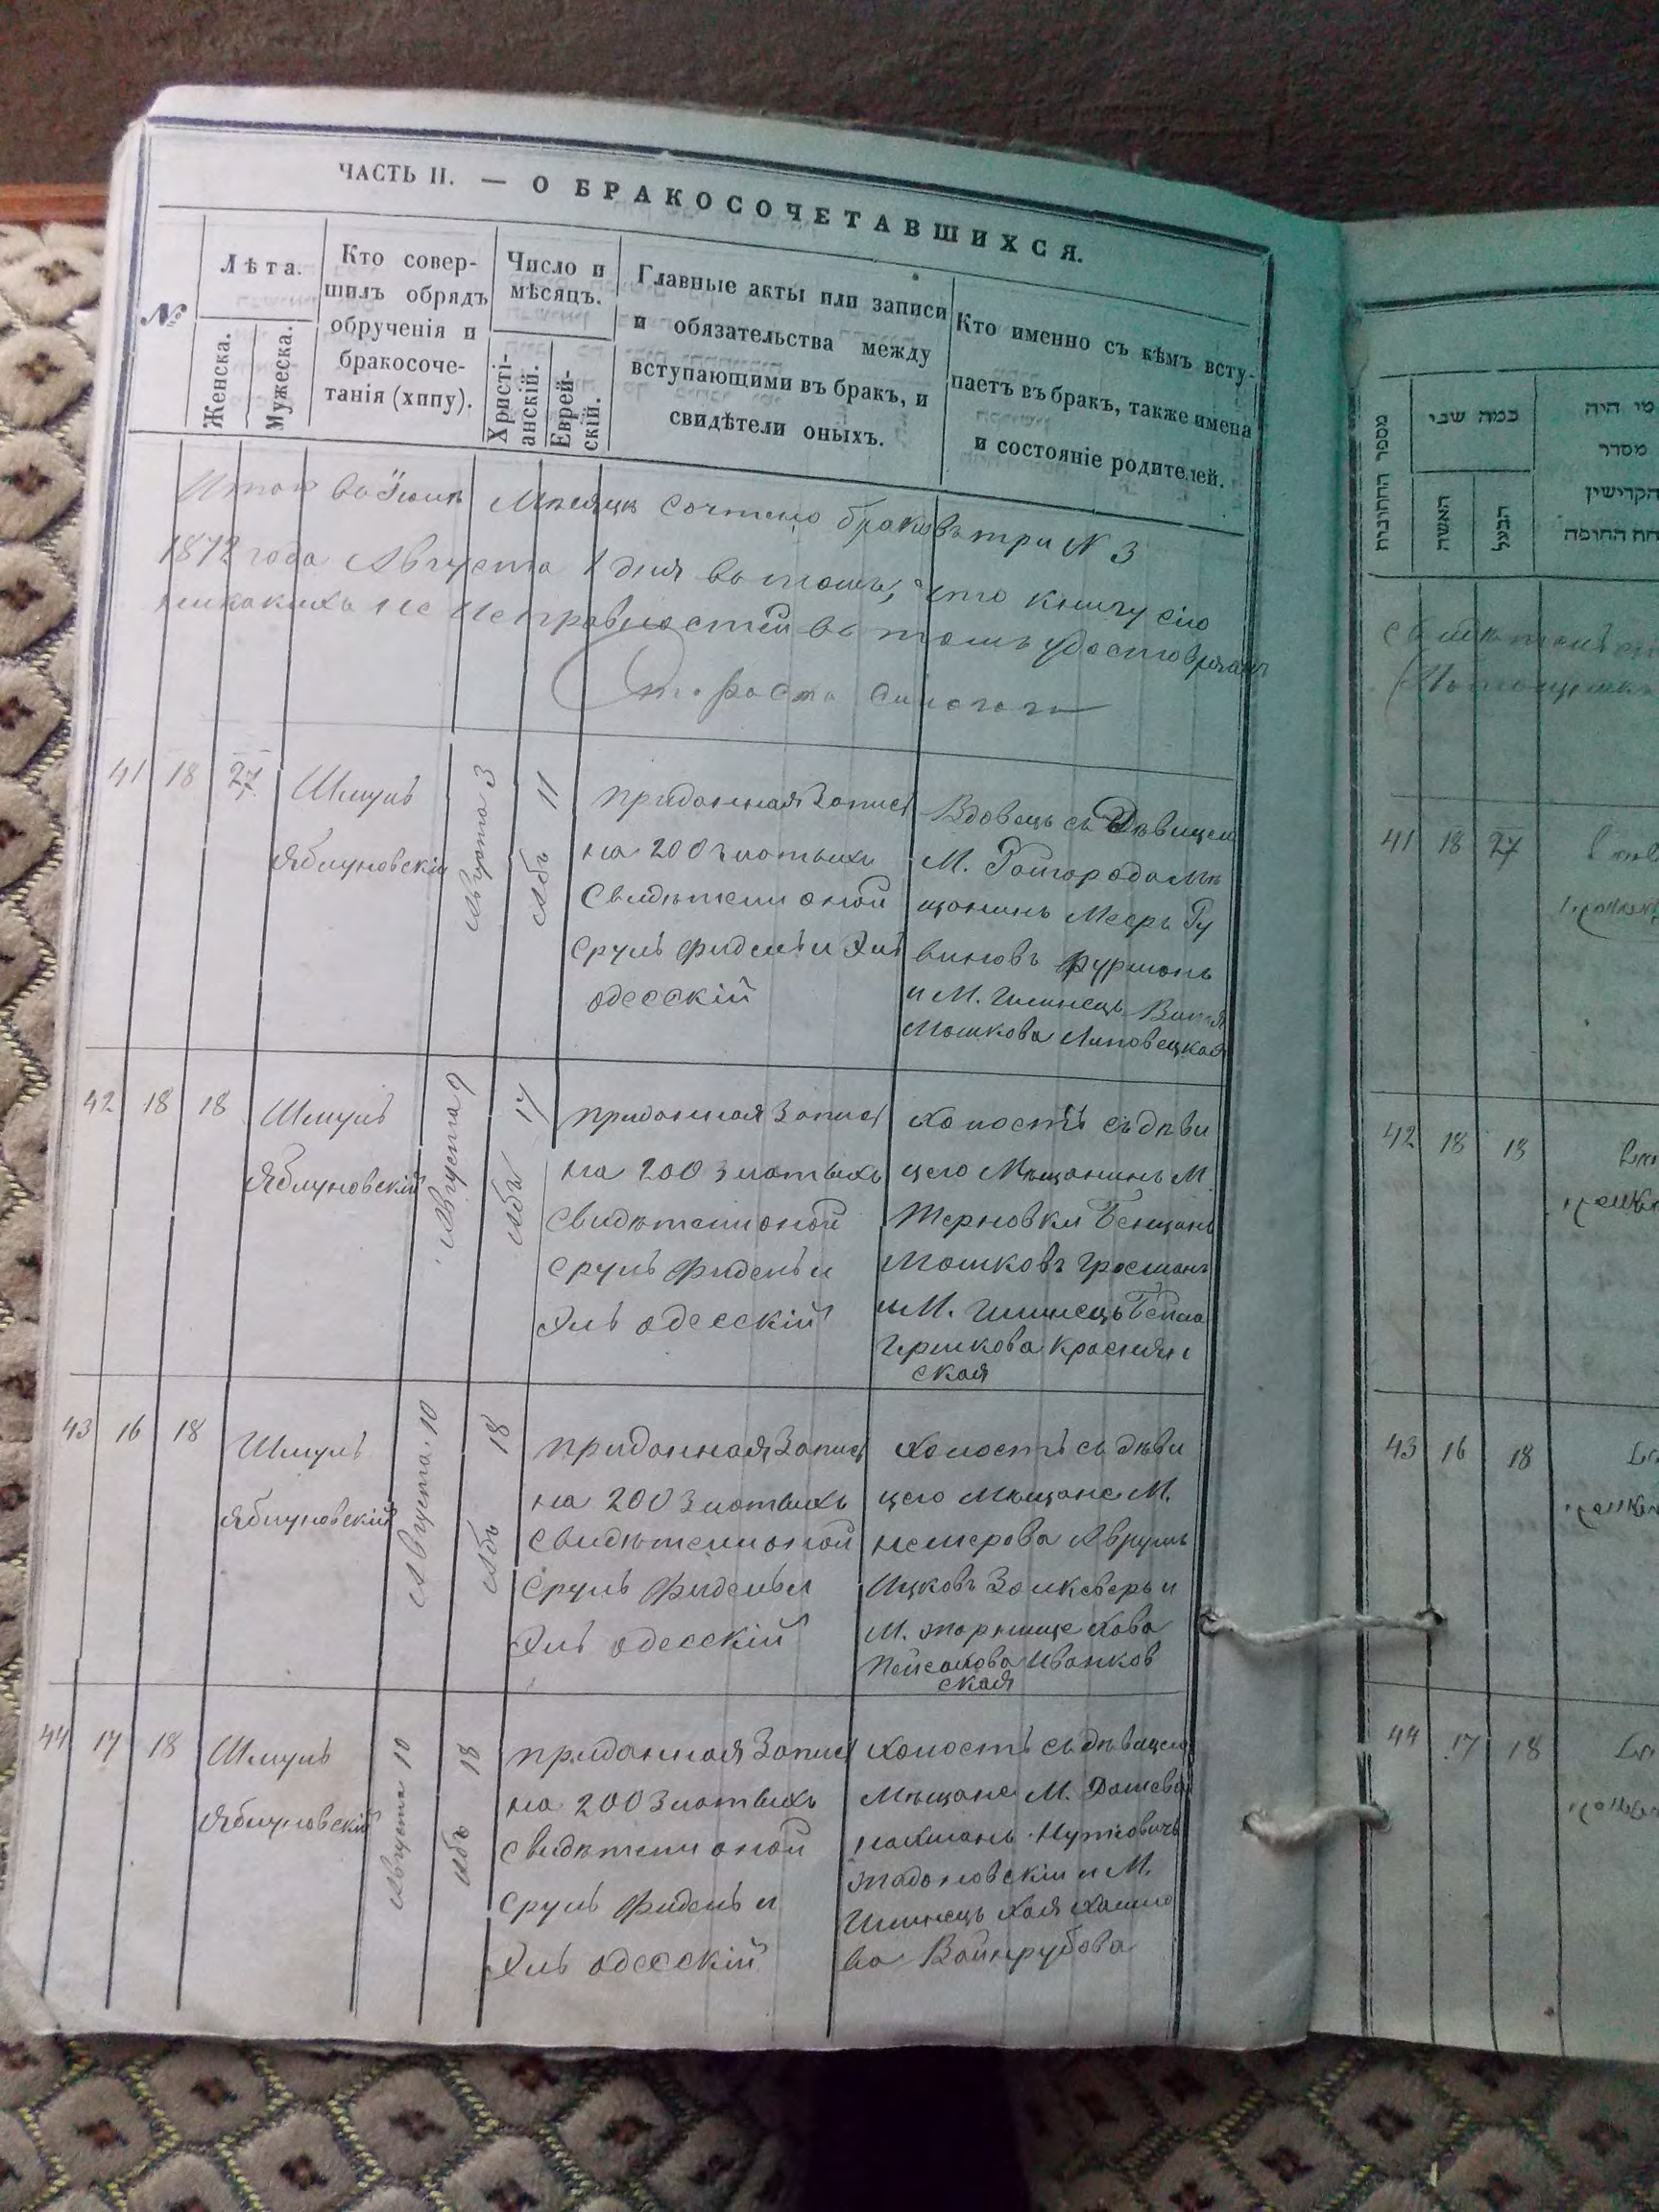 ЧАСТЬ II. — О БРАКОСОЧЕТАВШИХСЯ.
№
Лѣта.
Женска.
Мужеска.
Кто совер-
шилъ обрядъ
обрученія и
бракосоче-
танія (хппу).
Число и
мѣсяцъ.
Христі-
анскій.
Еврей-
скій.
Главные акты или записи
и обязательства между
вступающими въ бракъ, и
свидѣтели оныхъ.
Кто именно съ кѣмъ всту-
паетъ въ бракъ, также имена
и состояніе родителей.
Мѣсяцѣ сочтено браковъ три N 3
1872 года Августа 1 дня въ томъ, что книгу сію
никакихъ не исправностей въ томъ удостовѣряемъ
Староста синагоги
41 18 27
Шмуль
Яблуновскій
Августа 3
Абъ 11
приданная запись
на 200 злотыхъ
Свидѣтели оной
Сруль Фидель и Эль
одесскій
Вдовецъ съ Дѣвицею
М. Райгорода мѣ
щанинъ Мееръ Ру
виновъ Фурманъ
и М. Илинецъ
Мошкова Липовецкая
42 18 18
Шмуль
Яблуновскій
Августа 9
Абъ 17
приданная запись
на 200 злотыхъ
Свидѣтели оной
Сруль Фидель и
Эль одесскій
Холостъ съ дѣви
цею Мѣщанинъ М.
Терновки
Мошковъ Гросманъ
и М. Илинецъ Бейла
Гершкова Краснян
ская
43 16 18
Шмуль
Яблуновскій
Августа 10
Абъ 18
приданная запись
на 200 злотыхъ
свидѣтели оной
Сруль Фидель и
Эль одесскій
Холостъ съ дѣви
цею Мѣщане М.
Немирова Аврумъ
Ицковъ и
М. Хава
Пейсахова Иванков
ская
44 17 18
Шмуль
Яблуновскій
Августа 10
Абъ 18
приданная запись
на 200 злотыхъ
свидѣтели оной
Сруль Фидель и
Эль одесскій
Холостъ съ дѣвицею
Мѣщане М. Дашева
Нахманъ
и М.
Илинецъ Хая
ва Вайнрубова
מספר החתונות
כמה שני
האשה
הבעל
מי היה
מסדר
הקדושין
תחת החופה
41 18 27
42 18 18
43 16 18
44 17 18